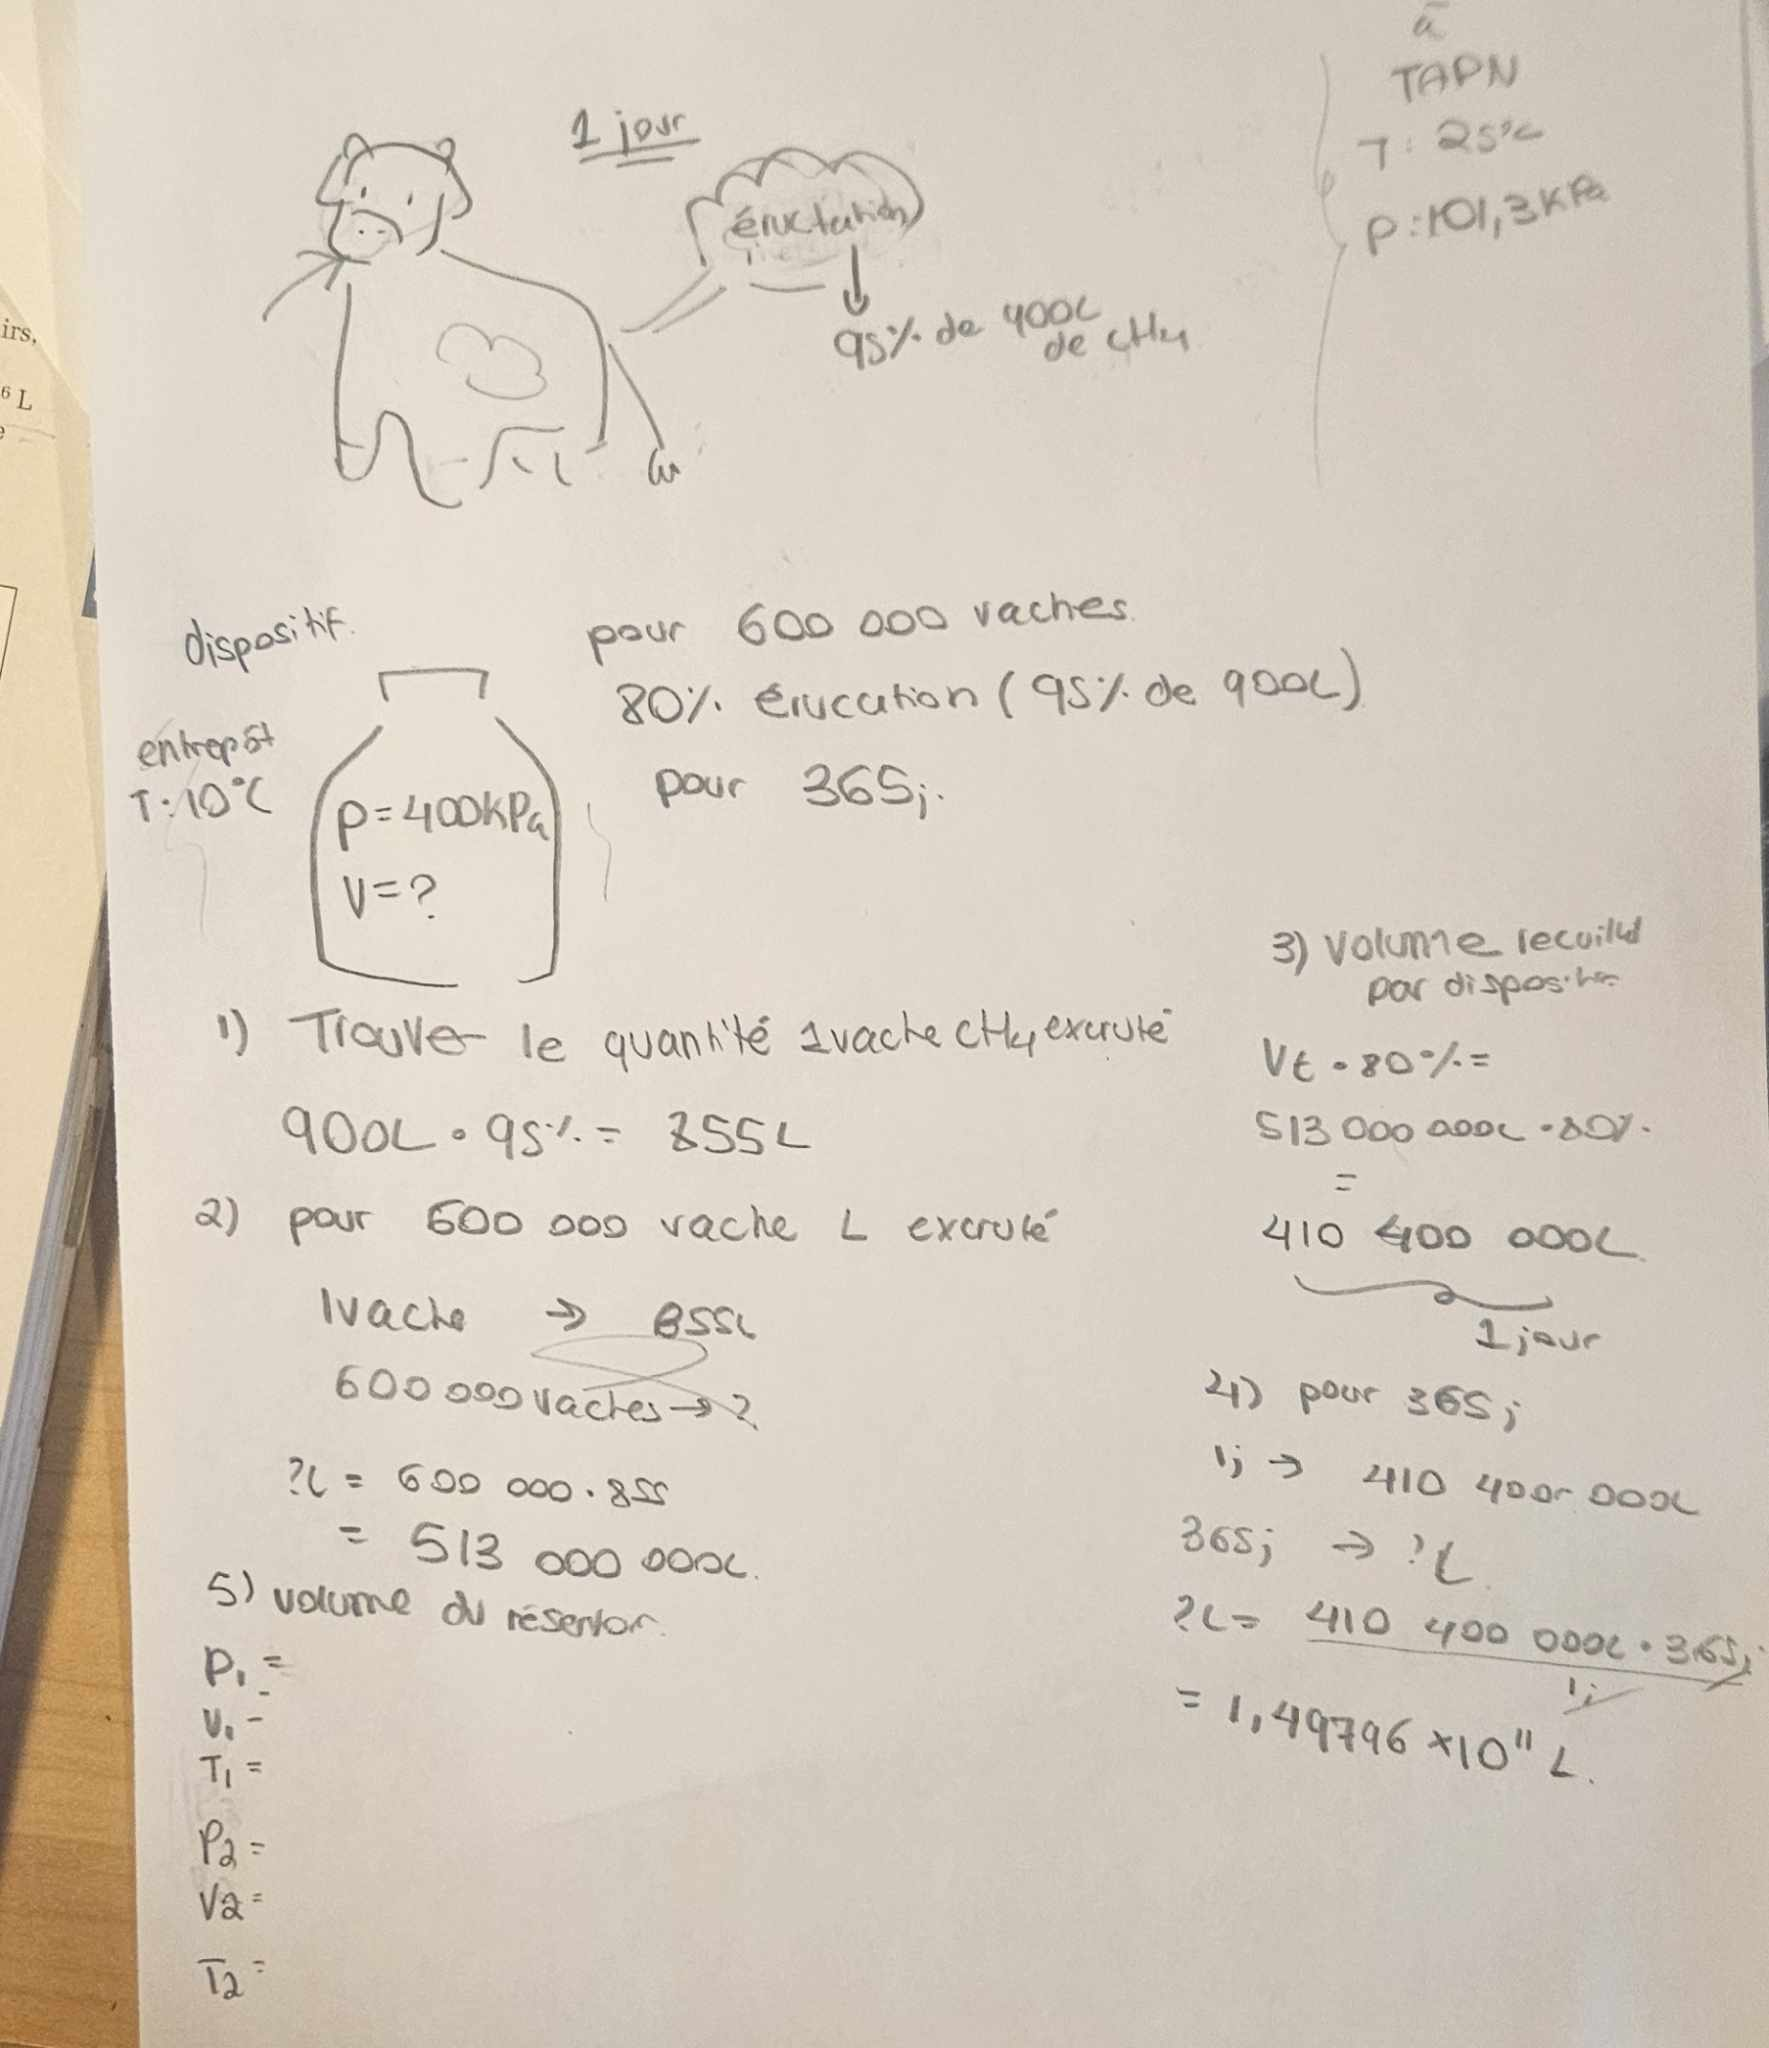 à
TAPN
T: 25°C
P:101,3KPa
1 jour
éructation
95% de 400L
de CH4
irs,
6 L
e
dispositif.
entrepôt
T:10°C
P=400KPa
V=?
pour 600 000 vaches.
80% érucation (95% de 900L)
pour 365j.
1) Trouver le quantité 1vache CH4 excruté
900L • 95% = 855L
2) pour 600 000 vache L excruté
1vache → 855L
600 000 vaches → ?
?L = 600 000 • 855
= 513 000 000L.
3) Volume recuilld
par dispositif
Vt • 80% =
513 000 000L • 80%
=
410 400 000L
1 jour
4) pour 365j
1j → 410 400 000L
365j → ?L
?L = 410 400 000L • 365j
1j
= 1,49796 ×10¹¹ L.
5) volume du réservoir.
P1 =
V1 =
T1 =
P2 =
V2 =
T2 =